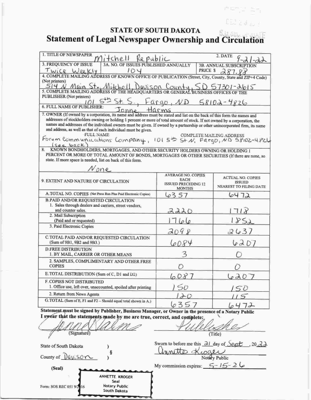 STATE OF SOUTH DAKOTA
Statement of Legal Newspaper Ownership and Circulation
1. TITLE OF NEWSPAPER
Mitchell Republic
2. DATE
9-21-22
3. FREQUENCY OF ISSUE
Twice Weekly
3A. NO. OF ISSUES PUBLISHED ANNUALLY
104
3B. ANNUAL SUBSCRIPTION
PRICE $ 287.88
4. COMPLETE MAILING ADDRESS OF KNOWN OFFICE OF PUBLICATION (Street, City, County, State and ZIP+4 Code)
(Not printers)
514 N Main St. Mitchell, Davison County, SD 57301-2615
5. COMPLETE MAILING ADDRESS OF THE HEADQUARTERS OR GENERAL BUSINESS OFFICES OF THE
PUBLISHER (Not printers)
101 5th St S., Fargo, ND 58102-4826
6. FULL NAME OF PUBLISHER:
Joann Harms
7. OWNER (If owned by a corporation, its name and address must be stated and list on the back of this form the names and
addresses of stockholders owning or holding 1 percent or more of total amount of stock. If not owned by a corporation, the
names and addresses of the individual owners must be given. If owned by a partnership or other unincorporated firm, its name
and address, as well as that of each individual must be given.
FULL NAME
COMPLETE MAILING ADDRESS
Forum Communications Company, 101 5th St N, Fargo, ND 58102-4826
(see back)
8. KNOWN BONDHOLDERS, MORTGAGES, AND OTHER SECURITY HOLDERS OWNING OR HOLDING 1
PERCENT OR MORE OF TOTAL AMOUNT OF BONDS, MORTGAGES OR OTHER SECURITIES (If there are none, so
state. If more space is needed, list on back of each page.
None
9. EXTENT AND NATURE OF CIRCULATION
AVERAGE NO. COPIES
EACH
ISSUED PRECEDING 12
MONTHS
ACTUAL NO. COPIES
ISSUED
NEAREST TO FILING DATE
A. TOTAL NO. COPIES (Net Press Run Plus Paid Electronic Copies)
6357
6472
B. PAID AND/OR REQUESTED CIRCULATION
1. Sales through dealers and carriers, street vendors,
and counter sales.
2220
1718
2. Mail Subscription
(Paid and/or requested)
1766
1852
3. Paid Electronic Copies
2098
2637
C. TOTAL PAID AND/OR REQUESTED CIRCULATION
(Sum of 9B1, 9B2 and 9B3.)
6084
6207
D. FREE DISTRIBUTION
1. BY MAIL, CARRIER OR OTHER MEANS
3
0
2. SAMPLES, COMPLIMENTARY AND OTHER FREE
COPIES
0
0
E. TOTAL DISTRIBUTION (Sum of C, D1 and D2)
6087
6207
F. COPIES NOT DISTRIBUTED
1. Office use, left over, unaccounted, spoiled after printing
150
150
2. Return from News Agents
120
115
G. TOTAL (Sum of E, F1 and F2 - Should equal total shown in A.)
6357
6472
Statement must be signed by Publisher, Business Manager, or Owner in the presence of a Notary Public
I swear that the statements made by me are true, correct, and complete:
Publisher
(Signature)
(Title)
State of South Dakota )
Sworn to before me this 21 day of Sept, 2022
Annette Kroger
County of Davison )
Notary Public
(Seal)
My commission expires: 5-15-26
ANNETTE KROGER
Seal
Notary Public
South Dakota